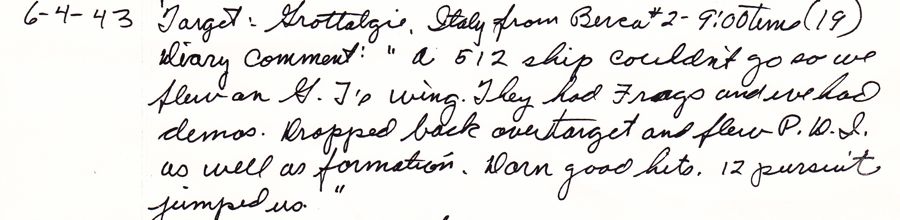 6-4-43 Target: Grottalgie, Italy from Berca #2 - 9:00 time (19)
Diary Comment: " A 512 ship couldn't go so we
flew on G. J's wing. They had Frags and we had
demos. Dropped back over target and flew P. D. I.
as well as formation. Darn good hits. 12 pursuit
jumped us."